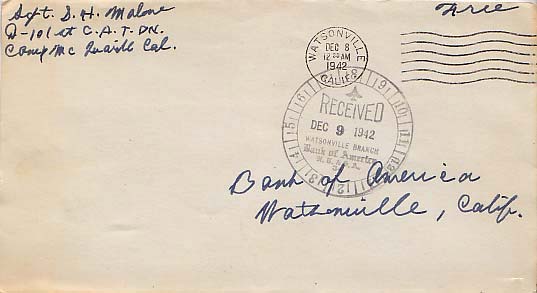 Sgt. D. H. Malone
D-101st C.A.T. DN.
Camp Mc Quaide Cal.
Free
WATSONVILLE
DEC 8
12 30 AM
1942
CALIF.
RECEIVED
DEC 9 1942
WATSONVILLE BRANCH
Bank of America
N.T. & S.A.
Bank of America
Watsonville, Calif.